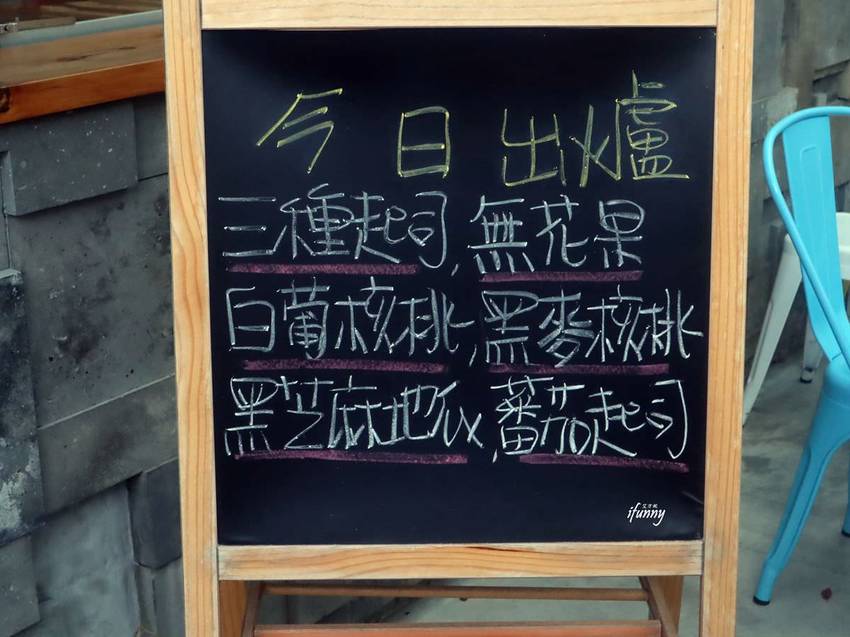 今日出爐
三種起司, 無花果
白葡核桃, 黑麥核桃
黑芝麻地瓜, 蕃茄起司
ifunny